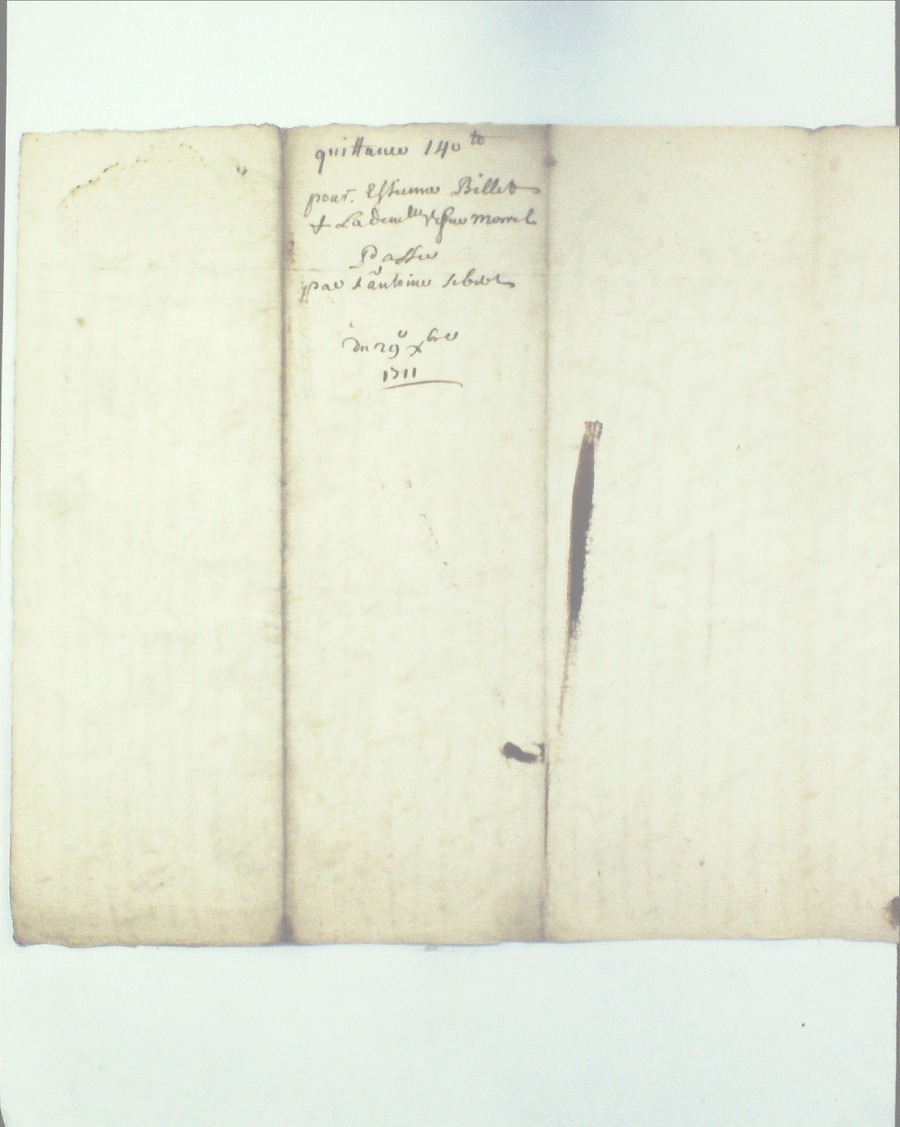 quittance 140 tt
pour. Estienne Billet
& La demlle vefve morrel
Passee
par Anthoine
du 29e xbre
1711